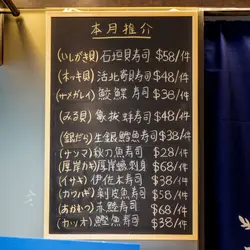 本月推介
(いしがき貝) 石垣貝寿司 $58/件
(ホッキ貝) 活北寄貝寿司 $48/件
(サメガレイ) 鮫鰈寿司 $38/件
(みる貝) 象拔蚌寿司 $48/件
(銀だら) 生銀鱈魚寿司 $38/件
(サンマ) 秋刀魚寿司 $28/件
(厚岸カキ) 厚岸蠔刺身 $68/件
(イサキ) 伊佐木寿司 $38/件
(カワハギ) 剥皮魚寿司 $56/件
(あかむつ) 赤鯥寿司 $68/件
(カツオ) 鰹魚寿司 $38/件